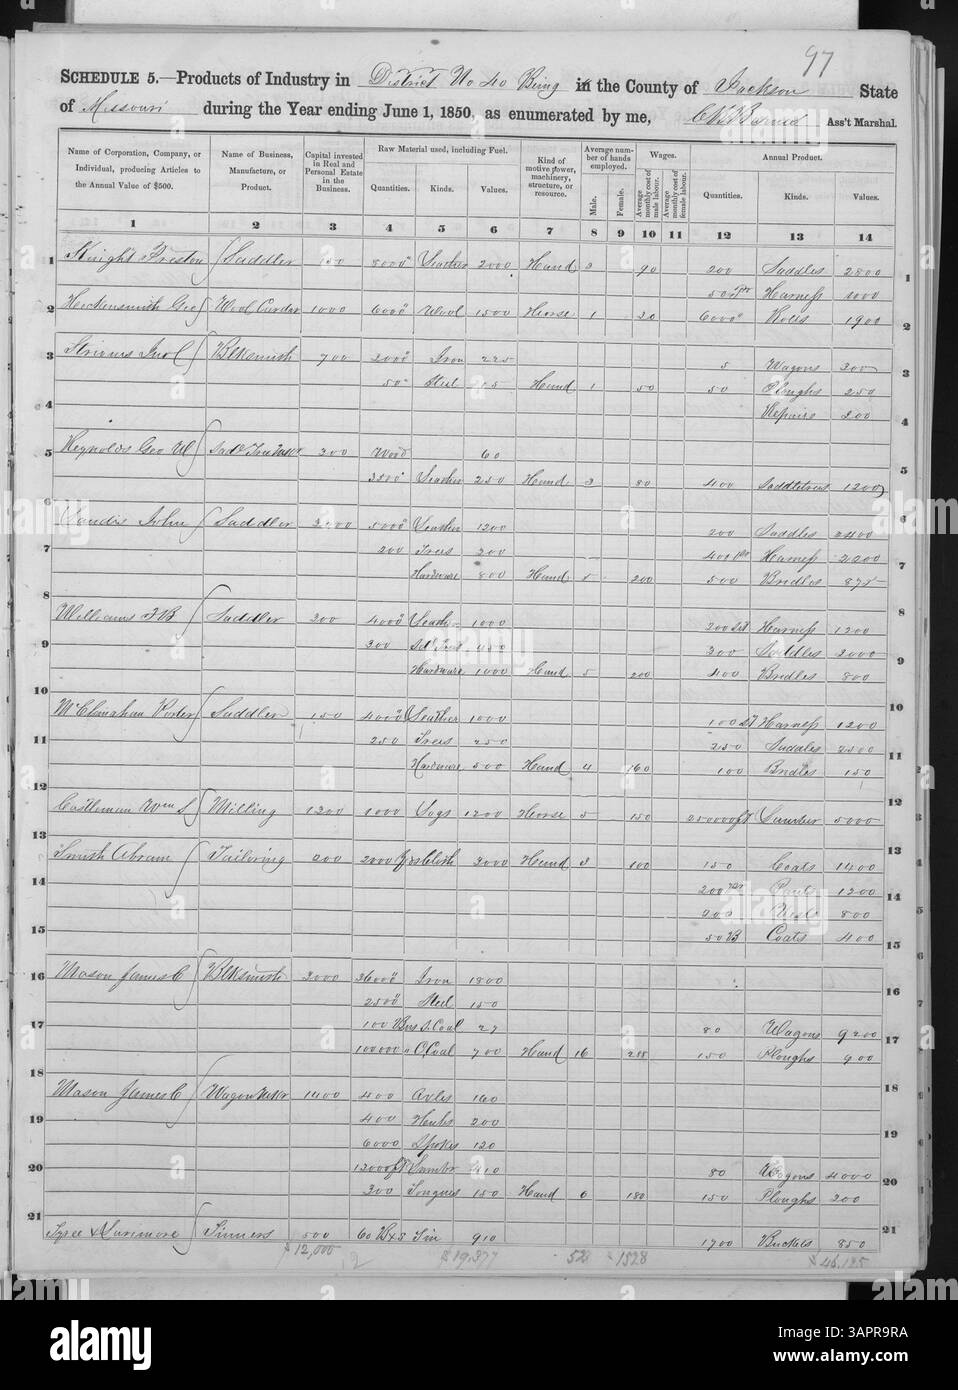 97
SCHEDULE 5.—Products of Industry in District No 40 Being in the County of Jackson State
of Missouri during the Year ending June 1, 1850, as enumerated by me, Ass't Marshal.
Name of Corporation, Company, or Individual, producing Articles to the Annual Value of $500.
Name of Business, Manufacture, or Product.
Capital invested in Real and Personal Estate in the Business.
Raw Material used, including Fuel.
Quantities. Kinds. Values.
Kind of motive power, machinery, structure, or resource.
Average number of hands employed.
Male. Female.
Wages.
Average monthly cost of male labour. Average monthly cost of female labour.
Annual Product.
Quantities. Kinds. Values.
1 2 3 4 5 6 7 8 9 10 11 12 13 14
1 Knight Saddler 8000 Leather 2000 Hand 3 90 200 Saddles 2800 1
Harness 1000
2 Hockensmith Geo Wool Carder 1000 6000 Wool 1500 Horse 1 20 6000 Rolls 1900 2
3 Blksmith 700 2000 Iron 225 5 Wagons 300 3
50 Steel 15 Hand 1 50 50 Ploughs 250
4 Repairs 200 4
5 Reynolds Geo W 200 Wood 60 5
Leather 250 Hand 3 80 400 Saddletrees 1200
6 John Saddler 5000 Leather 1200 200 Saddles 2400 6
7 200 Trees 200 Harness 7
Hardware 800 Hand 200 500 Bridles 875
8 Williams Saddler 200 4000 Leather 1000 200 Sets Harness 1200 8
9 300 Saddles 9
Hardware 1000 Hand 5 200 400 Bridles 800
10 McClanahan Porter Saddler 150 4000 Leather 1000 100 Harness 1200 10
11 250 Trees 250 250 Saddles 2500 11
Hardware 500 Hand 4 160 100 Bridles 150
12 Castleman Wm S Milling 1200 1000 Logs 1200 Horse 5 150 Lumber 5000 12
13 Smith Abram Tailoring 200 2000 Yds Cloth 3000 Hand 3 100 150 Coats 1400 13
14 200 Pants 1200 14
200 Vests 800
15 50 Coats 400 15
16 Mason James C Blksmith 3000 36000 Iron 1800 16
2500 Steel 150
17 100 Bus S. Coal 27 80 Wagons 9200 17
100000 " C Coal 700 Hand 16 150 Ploughs 900
18 18
Mason James C Wagon Mkr 1400 400 Axles 160
19 400 Hubs 200 19
6000 Spokes 120
20 12000 ft Lumbr 80 Wagons 4000 20
300 Tongues 150 Hand 6 180 150 Ploughs 200
21 Tyree & Larimore Tinners 500 60 Bxs Tin 910 1700 Buckets 850 21
$12,000 2 $19,877 52 1528 $46,125
alamy
Image ID: 3APR9RA
www.alamy.com